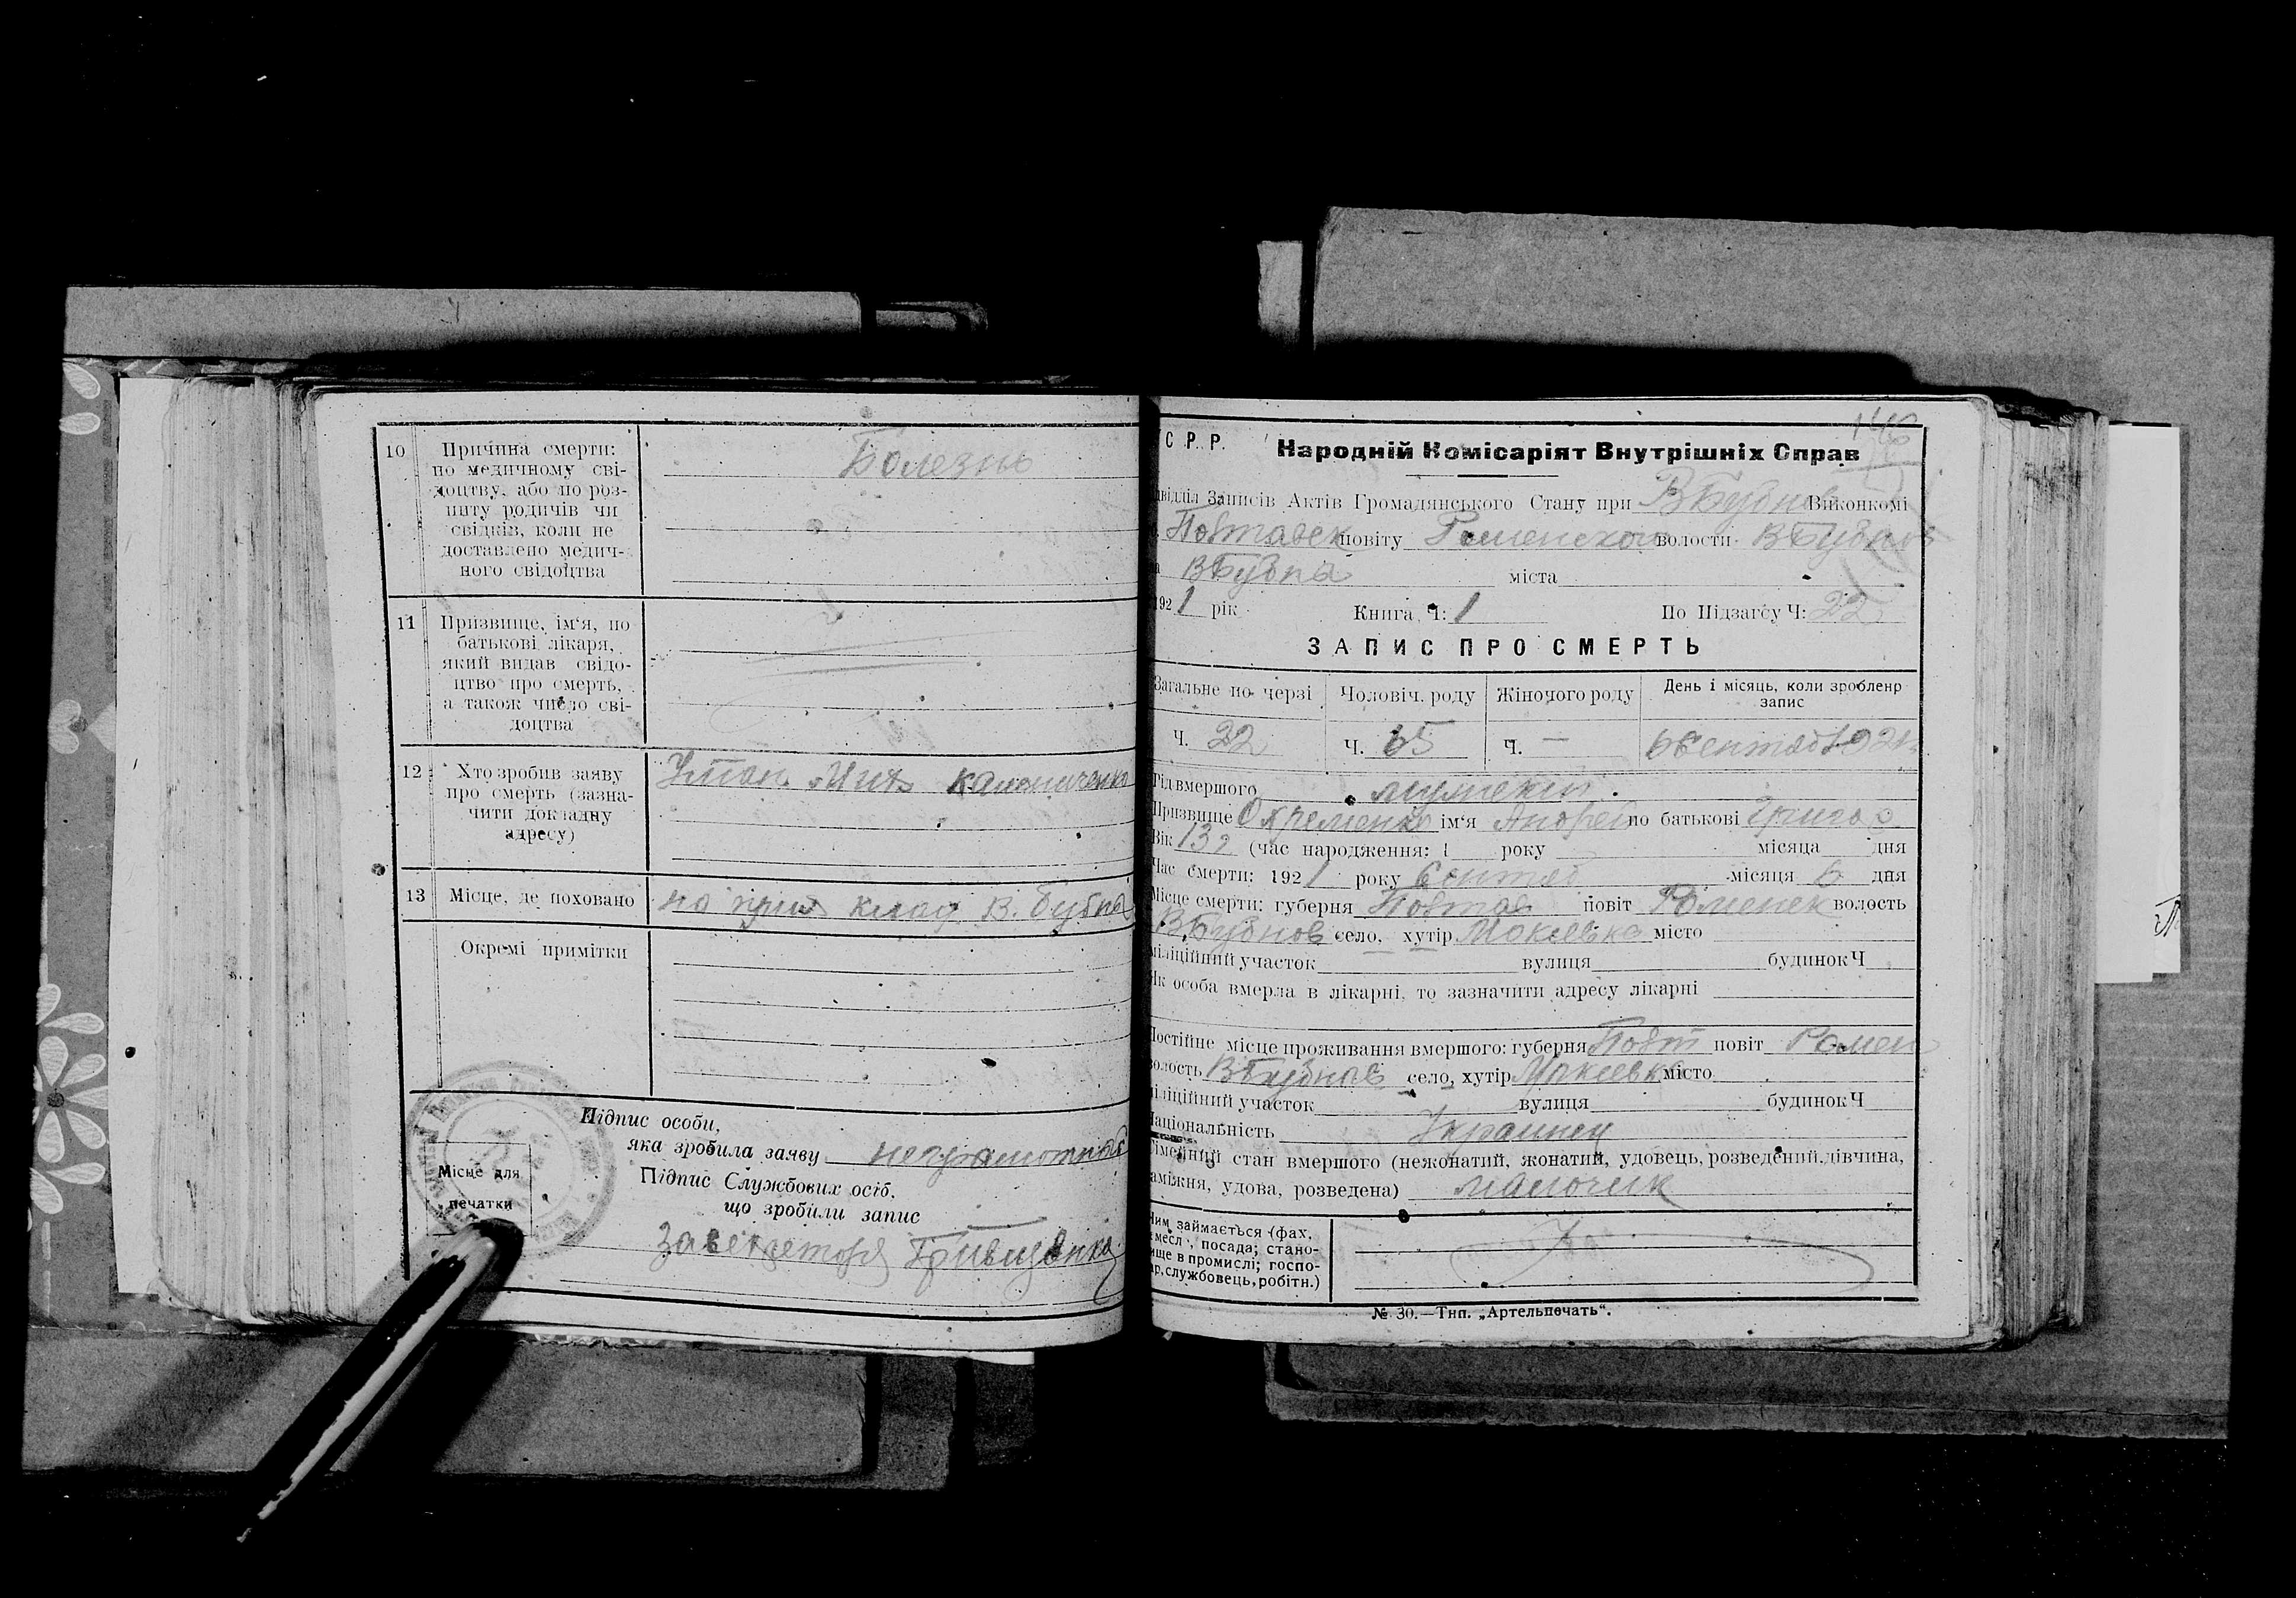 10 Причина смерти:
по медичному сві-
доцтву, або по роз-
питу родичів чи
свідків, коли не
доставлено медич-
ного свідоцтва
Болезнь
11 Призвище, ім'я, по
батькові лікаря,
який видав свідо-
цтво про смерть,
а також число сві-
доцтва
12 Хто зробив заяву
про смерть (зазна-
чити докладну
адресу)
13 Місце, де поховано
на клад В. Бубна
Окремі примітки
Підпис особи,
яка зробила заяву неграмотная
Місце для
печатки
Підпис Службових осіб,
що зробили запис
146
С. Р. Р. Народній Комісаріят Внутрішніх Справ
Записів Актів Громадянського Стану при ВБубнов Виконкомі
повіту Роменского волости ВБубнов
ВБубна міста
1921 рік Книга Ч: 1 По Підзагсу Ч: 22
ЗАПИС ПРО СМЕРТЬ
Загальне по черзі Чоловіч. роду Жіночого роду День і місяць, коли зроблено запис
Ч. 22 Ч. 15 Ч. — 6 Сентяб 1921
Рід вмершого мужской
Призвище Охременко ім'я Андрей по батькові Григор
Вік (час народження: 1 року місяца дня
Час смерти: 1921 року Сентяб місяця 6 дня
Місце смерти: губерня Полтав повіт Роменск волость
ВБубнов село, хутір Макеевка місто
міліційний участок вулиця будинок Ч
Як особа вмерла в лікарні, то зазначити адресу лікарні
Постійне місце проживання вмершого: губерня Полт повіт Ромен
волость ВБубнов село, хутір Макеевка місто
міліційний участок вулиця будинок Ч
Національність Украинец
Сімейний стан вмершого (нежонатий, жонатий, удовець, розведений, дівчина,
заміжня, удова, розведена) мальчик
Чим займається (фах,
ремесл., посада; стано-
вище в промислі; госпо-
дар, службовець, робітн.)
№ 30.—Тип. „Артельпечать“.